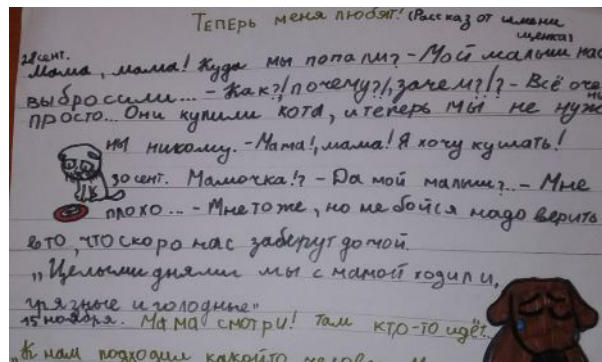 Теперь меня любят! (Рассказ от имени щенка)
28 сент.
Мама, мама! Куда мы попали? - Мой малыш нас
выбросили... - Как?! почему?!, зачем?!? - Всё оче
просто... Они купили кота, и теперь мы не нуж
ны никому. - Мама!, мама! Я хочу кушать!
30 сент. Мамочка!? - Да мой малыш?.. - Мне
плохо... - Мне тоже, но не бойся надо верить
в это, что скоро нас заберут домой.
„Целыми днями мы с мамой ходили,
грязные и голодные"
15 ноября. Мама смотри! Там кто-то идёт...
„К нам подходил какойто